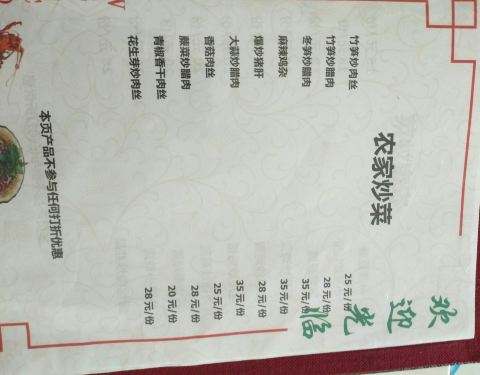 欢迎光临
农家炒菜
竹笋炒肉丝 25 元/份
竹笋炒腊肉 28 元/份
冬笋炒腊肉 35 元/份
麻辣鸡杂 35 元/份
爆炒猪肝 28 元/份
大蒜炒腊肉 35 元/份
香菇肉丝 25 元/份
蕨菜炒腊肉 28 元/份
青椒香干肉丝 20 元/份
花生芽炒肉丝 28 元/份
本页产品不参与任何打折优惠